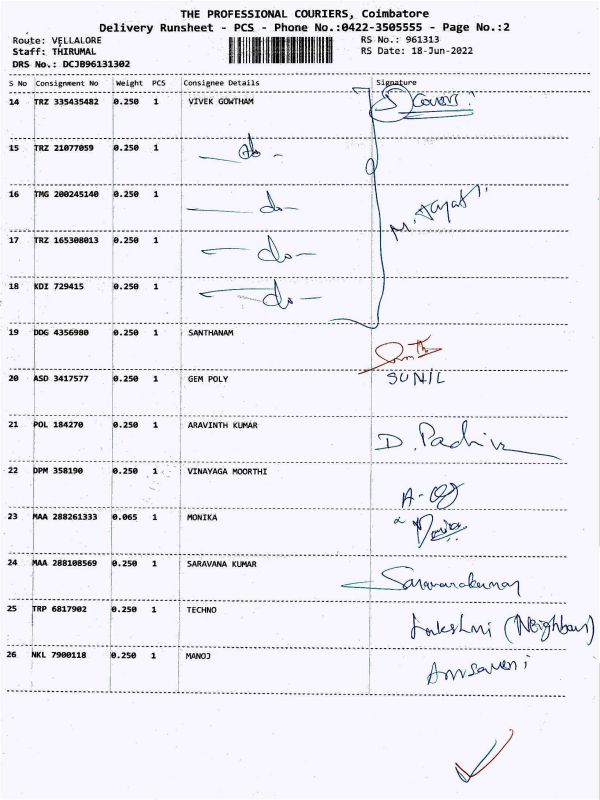 THE PROFESSIONAL COURIERS, Coimbatore
Delivery Runsheet - PCS - Phone No.:0422-3505555 - Page No.:2
Route: VELLALORE RS No.: 961313
Staff: THIRUMAL RS Date: 18-Jun-2022
DRS No.: DCJB96131302
S No Consignment No Weight PCS Consignee Details Signature
14 TRZ 335435482 0.250 1 VIVEK GOWTHAM 5 Covers
15 TRZ 21077059 0.250 1 do -
16 TMG 200245140 0.250 1 - do -
17 TRZ 165308013 0.250 1 - do -
18 KDI 729415 0.250 1 - do -
19 DDG 4356980 0.250 1 SANTHANAM
20 ASD 3417577 0.250 1 GEM POLY SUNIL
21 POL 184270 0.250 1 ARAVINTH KUMAR
D. Padhi
22 DPM 358190 0.250 1 VINAYAGA MOORTHI
23 MAA 288261333 0.065 1 MONIKA
24 MAA 288108569 0.250 1 SARAVANA KUMAR
Saravanakumar
25 TRP 6817902 0.250 1 TECHNO
Lakshmi (Neighbour)
26 NKL 7900118 0.250 1 MANOJ